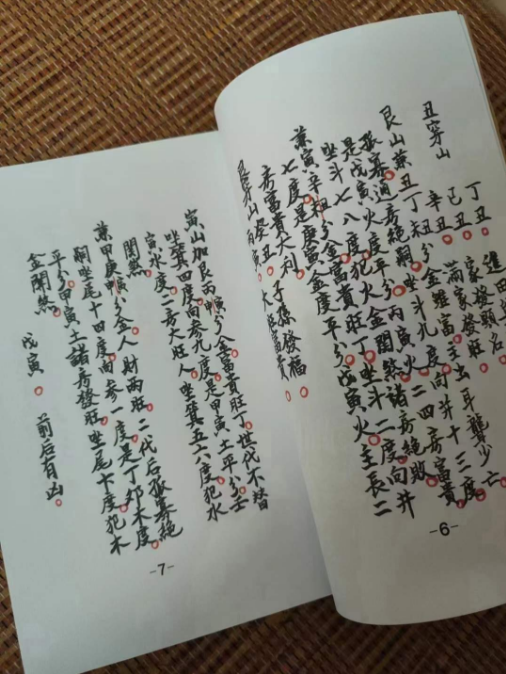 丑穿山
丁丑
己丑 豪發旺
辛丑
艮山兼丑丁丑分金雖富主出耳聾少亡
孤寡過房絕嗣坐斗九度向井十三度
是戊寅火度平分丙寅火二四房富貴
坐斗七八度犯火金關煞諸房絕敗
兼寅辛丑分金富貴旺丁坐斗二度向井
七度是庚寅金度平分戊寅火主長二
房富貴大利
艮穿山 癸丑 子孫發福
丙寅 大旺富貴
-6-
寅山加艮丙寅分金富貴旺丁世代不替
坐箕四度向參九度是甲寅土平分壬
寅水度二房大旺人坐箕五六度犯水
關煞
兼甲庚寅分金人財兩旺二代后孤寡絕
嗣坐尾十四度向參一度是丁卯木度
平分甲寅土諸房發旺坐尾十度犯木
金關煞 戊寅 前后有凶
-7-